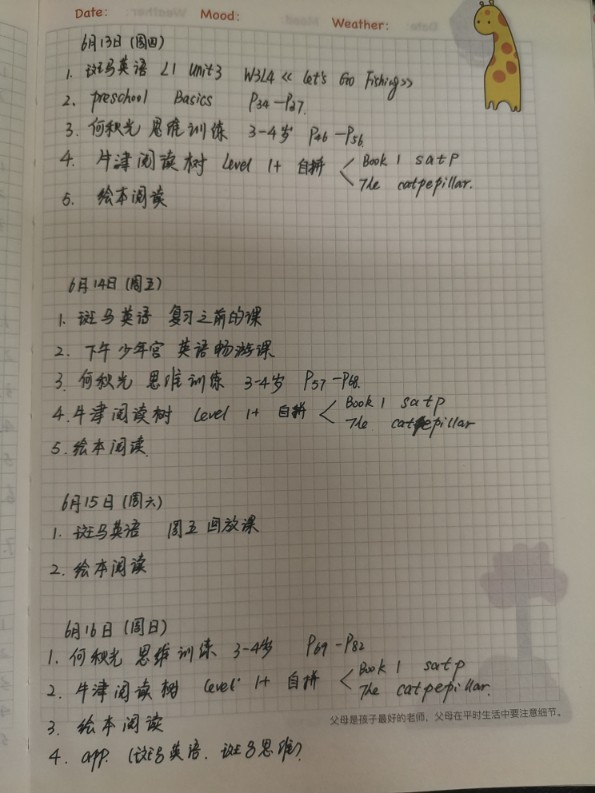 Date: Mood: Weather:
6月13日(周四)
1. 斑马英语 L1 Unit3 W3L4 《Let's Go Fishing》
2. preschool Basics P34-P27.
3. 何秋光 思维训练 3-4岁 P46-P56.
4. 牛津阅读树 Level 1+ 自拼 < Book 1 satp
The catpepillar.
5. 绘本阅读
6月14日(周五)
1. 斑马英语 复习之前的课
2. 下午少年宫 英语畅游课
3. 何秋光 思维训练 3-4岁 P57-P68.
4. 牛津阅读树 Level 1+ 自拼 < Book 1 satp
The catpepillar
5. 绘本阅读.
6月15日(周六)
1. 斑马英语 周五回放课
2. 绘本阅读
6月16日(周日)
1. 何秋光 思维训练 3-4岁 P69-P82
2. 牛津阅读树 Level 1+ 自拼 < Book 1 satp
The catpepillar.
3. 绘本阅读
父母是孩子最好的老师，父母在平时生活中要注意细节。
4. app (斑马英语、斑马思维)